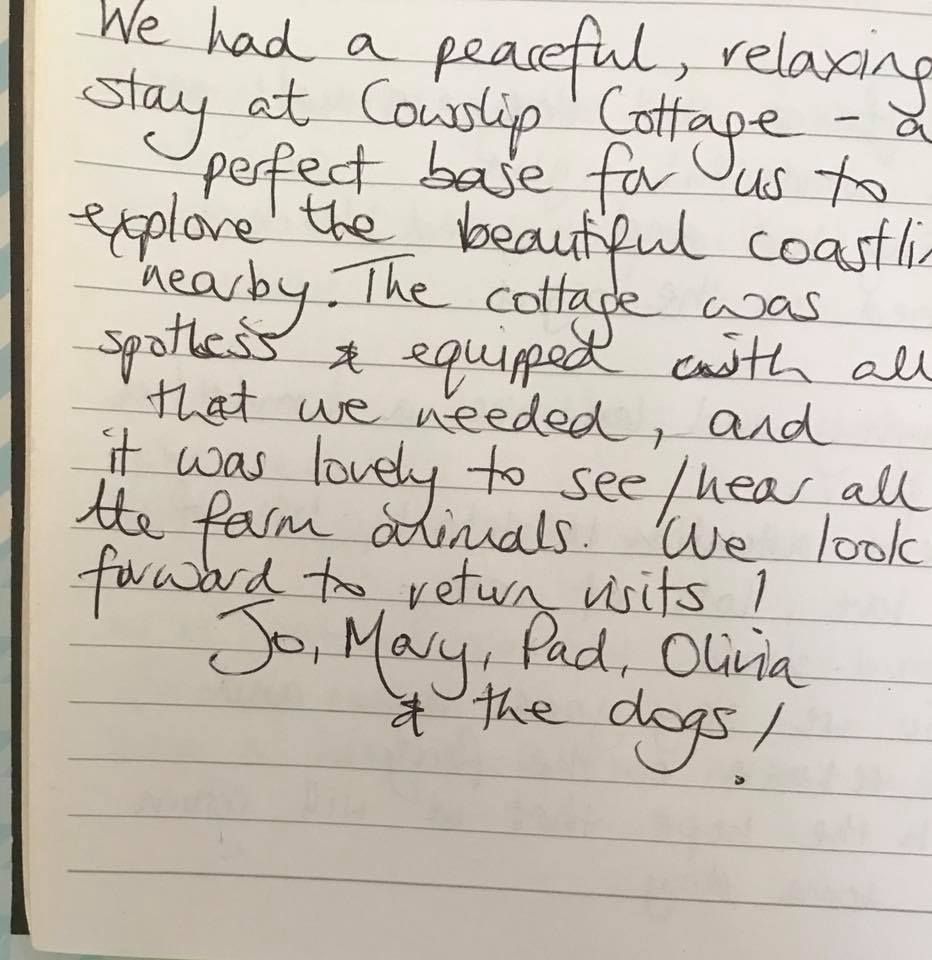 We had a peaceful, relaxing
stay at Cowslip Cottage - a
perfect base for us to
explore the beautiful coastli
nearby. The cottage was
spotless & equipped with all
that we needed, and
it was lovely to see/hear all
the farm animals. We look
forward to return visits!
Jo, Mary, Pad, Olivia
& the dogs!